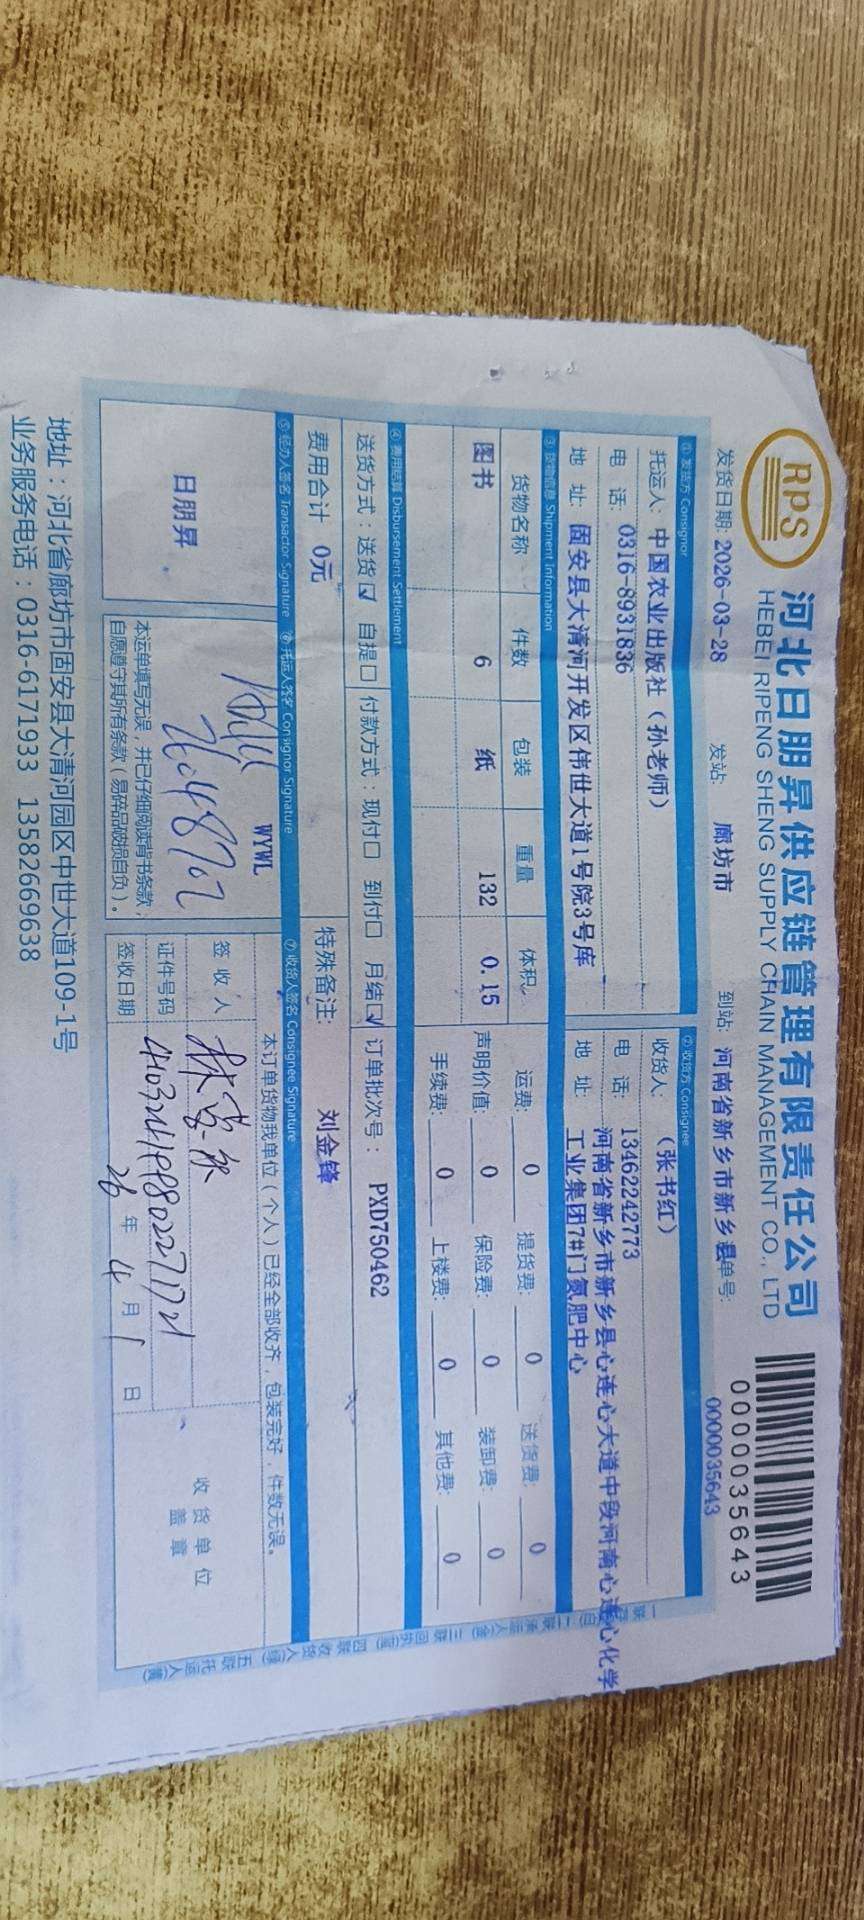 RPS
河北日朋昇供应链管理有限责任公司
HEBEI RIPENG SHENG SUPPLY CHAIN MANAGEMENT CO., LTD
0000035643
发货日期: 2026-03-28 发站: 廊坊市 到站: 河南省新乡市新乡县 单号: 0000035643
①发货方 Consignor ②收货方 Consignee
托运人: 中国农业出版社（孙老师） 收货人: （张书红）
电 话: 0316-8931836 电 话: 13462242773
地 址: 固安县大清河开发区伟世大道1号院3号库 地 址: 河南省新乡市新乡县心连心大道中段河南心连心化学
工业集团7#门氮肥中心
③货物信息 Shipment Information
货物名称 件数 包装 重量 体积 运费: 0 提货费: 0 送货费: 0
图书 6 纸 132 0.15 声明价值: 0 保险费: 0 装卸费: 0
手续费: 0 上楼费: 0 其他费: 0
④费用结算 Disbursement Settlement
送货方式：送货☑ 自提□ 付款方式：现付□ 到付□ 月结☑ 订单批次号： PXD750462
费用合计 0元 特殊备注: 刘金锋
⑤经办人签名 Transactor Signature ⑥托运人签名 Consignor Signature ⑦收货人签名 Consignee Signature
日朋昇
WYWL
本运单填写无误，并已仔细阅读背书条款，
自愿遵守其所有条款（易碎品破损自负）。
本订单货物我单位（个人）已经全部收齐，包装完好，件数无误。
签 收 人
证件号码
签收日期 26 年 4 月 1 日
收货单位
盖章
地址：河北省廊坊市固安县大清河园区中世大道109-1号
业务服务电话：0316-6171933 13582669638